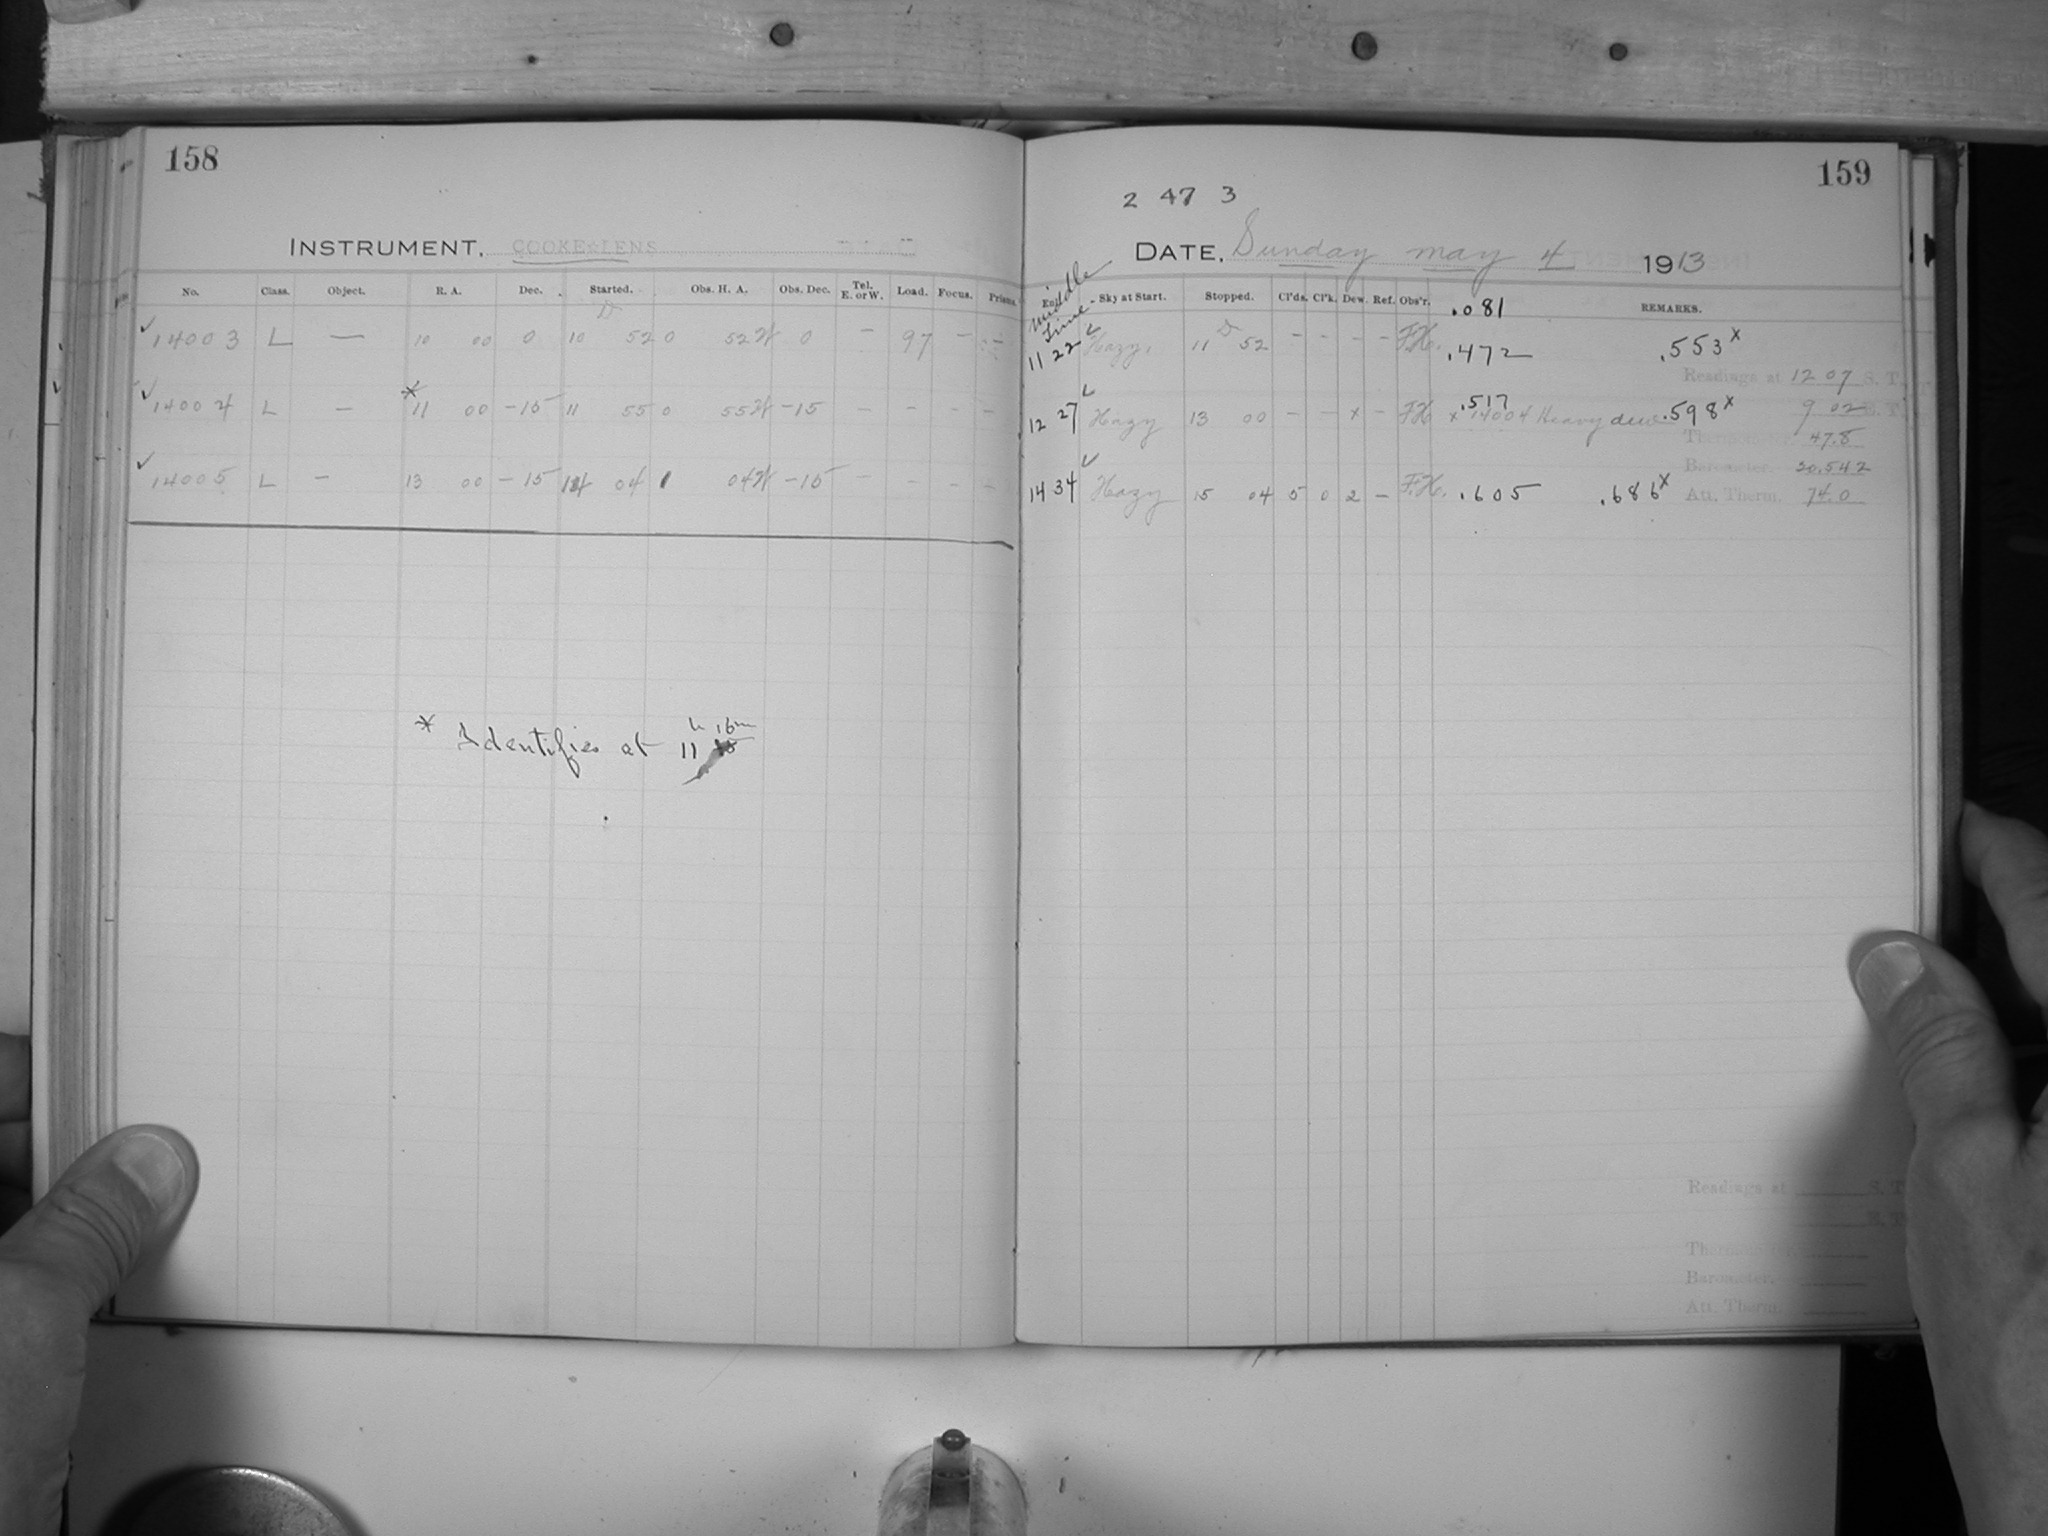 158
INSTRUMENT, COOKE LENS
No. Class. Object. R. A. Dec. Started. Obs. H. A. Obs. Dec. Tel. E. or W. Load. Focus. Prisms.
✓ 14003 L — 10 00 0 10 52 0 52 W 0 — 97 — —
✓ 14004 L — * 11 00 -15 11 55 0 55 W -15 — — — —
✓ 14005 L — 13 00 -15 14 04 1 04 W -15 — — — —
* Identifies at 11h 16m
159
2 47 3
DATE, Sunday May 4 1913
Middle Time Sky at Start. Stopped. Cl'ds. Cl'k. Dew. Ref. Obs'r. .081 REMARKS.
11 22 ✓ Hazy. 11 52 — — — — F.H. .472 .553 x
Readings at 12 07 S. T.
12 27 ✓ Hazy 13 00 — — x — F.H. .517 x 14004 Heavy dew .598 x
9 02 E. T.
Thermometer. 47.8
Barometer. 30.542
14 34 ✓ Hazy 15 04 5 0 2 — F.H. .605 .686 x
Att. Therm. 74.0
Readings at S. T.
E. T.
Thermometer.
Barometer.
Att. Therm.